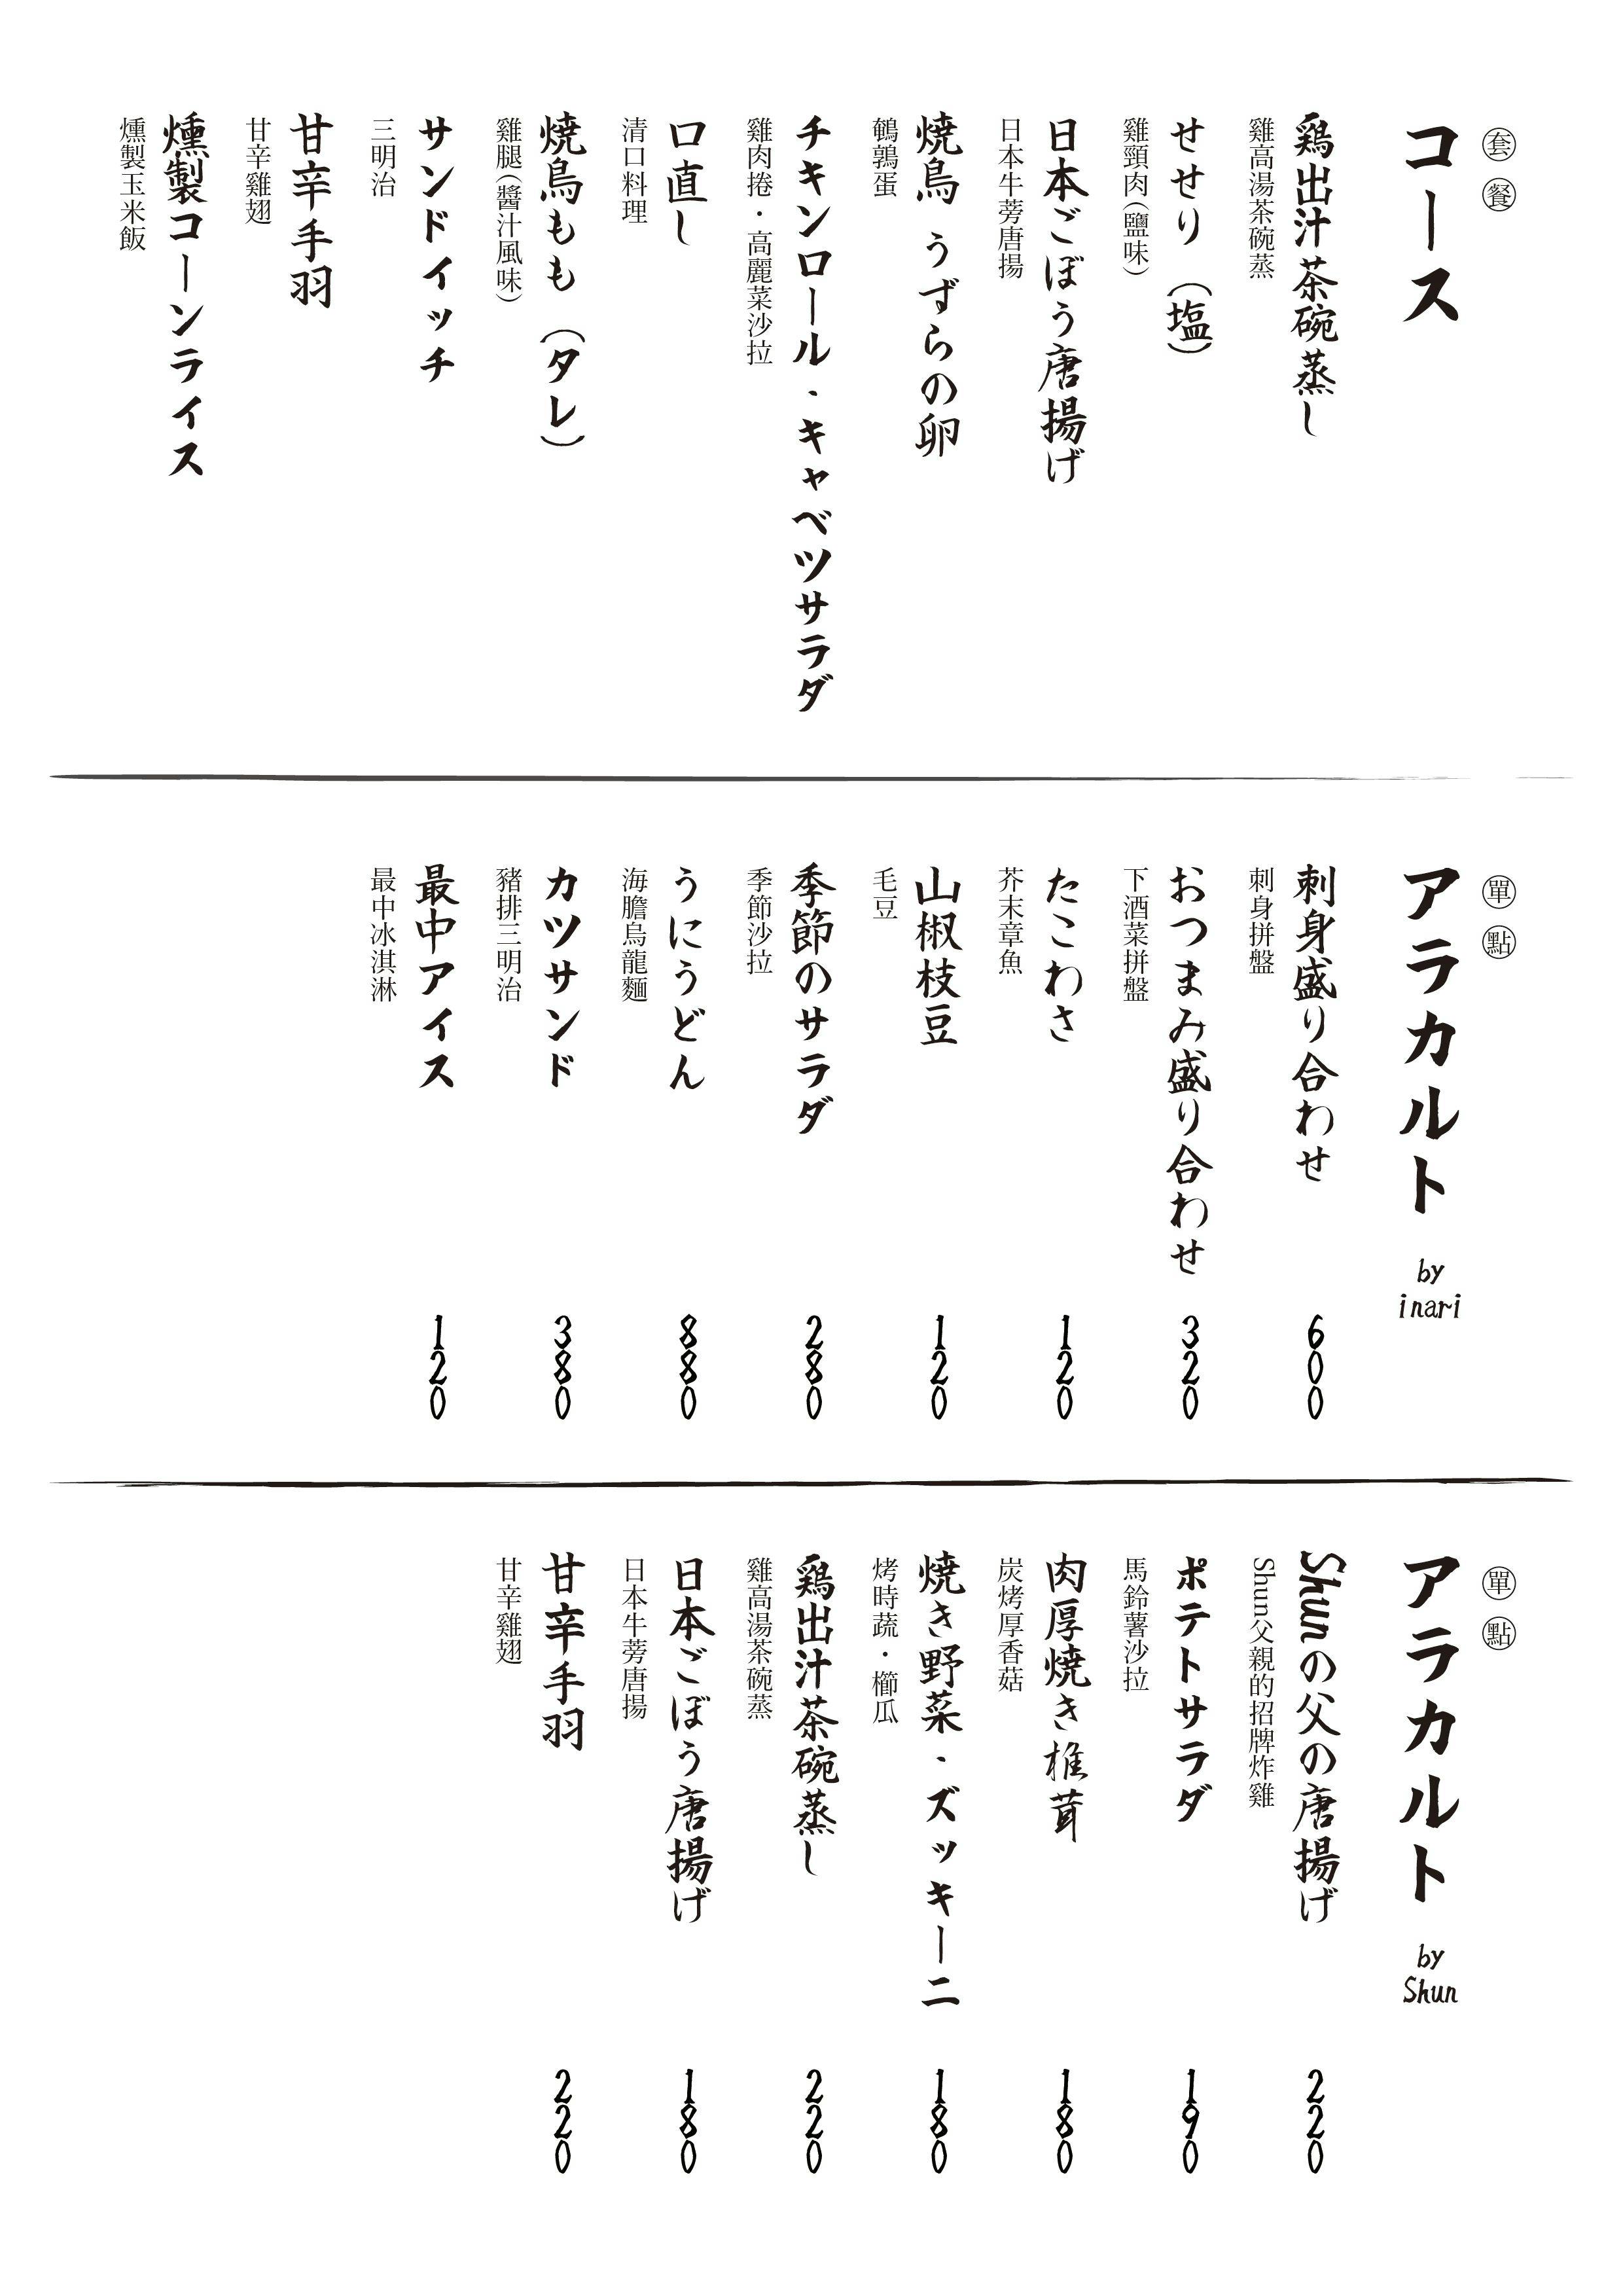 套餐
コース
鶏出汁茶碗蒸し
雞高湯茶碗蒸
せせり（塩）
雞頸肉（鹽味）
日本ごぼう唐揚げ
日本牛蒡唐揚
焼鳥 うずらの卵
鵪鶉蛋
チキンロール・キャベツサラダ
雞肉捲・高麗菜沙拉
口直し
清口料理
焼鳥もも（タレ）
雞腿（醬汁風味）
サンドイッチ
三明治
甘辛手羽
甘辛雞翅
燻製コーンライス
燻製玉米飯
單點
アラカルト by inari
刺身盛り合わせ 600
刺身拼盤
おつまみ盛り合わせ 320
下酒菜拼盤
たこわさ 120
芥末章魚
山椒枝豆 120
毛豆
季節のサラダ 280
季節沙拉
うにうどん 880
海膽烏龍麵
カツサンド 380
豬排三明治
最中アイス 120
最中冰淇淋
單點
アラカルト by Shun
Shunの父の唐揚げ 220
Shun父親的招牌炸雞
ポテトサラダ 190
馬鈴薯沙拉
肉厚焼き椎茸 180
炭烤厚香菇
焼き野菜・ズッキーニ 180
烤時蔬・櫛瓜
鶏出汁茶碗蒸し 220
雞高湯茶碗蒸
日本ごぼう唐揚げ 180
日本牛蒡唐揚
甘辛手羽 220
甘辛雞翅